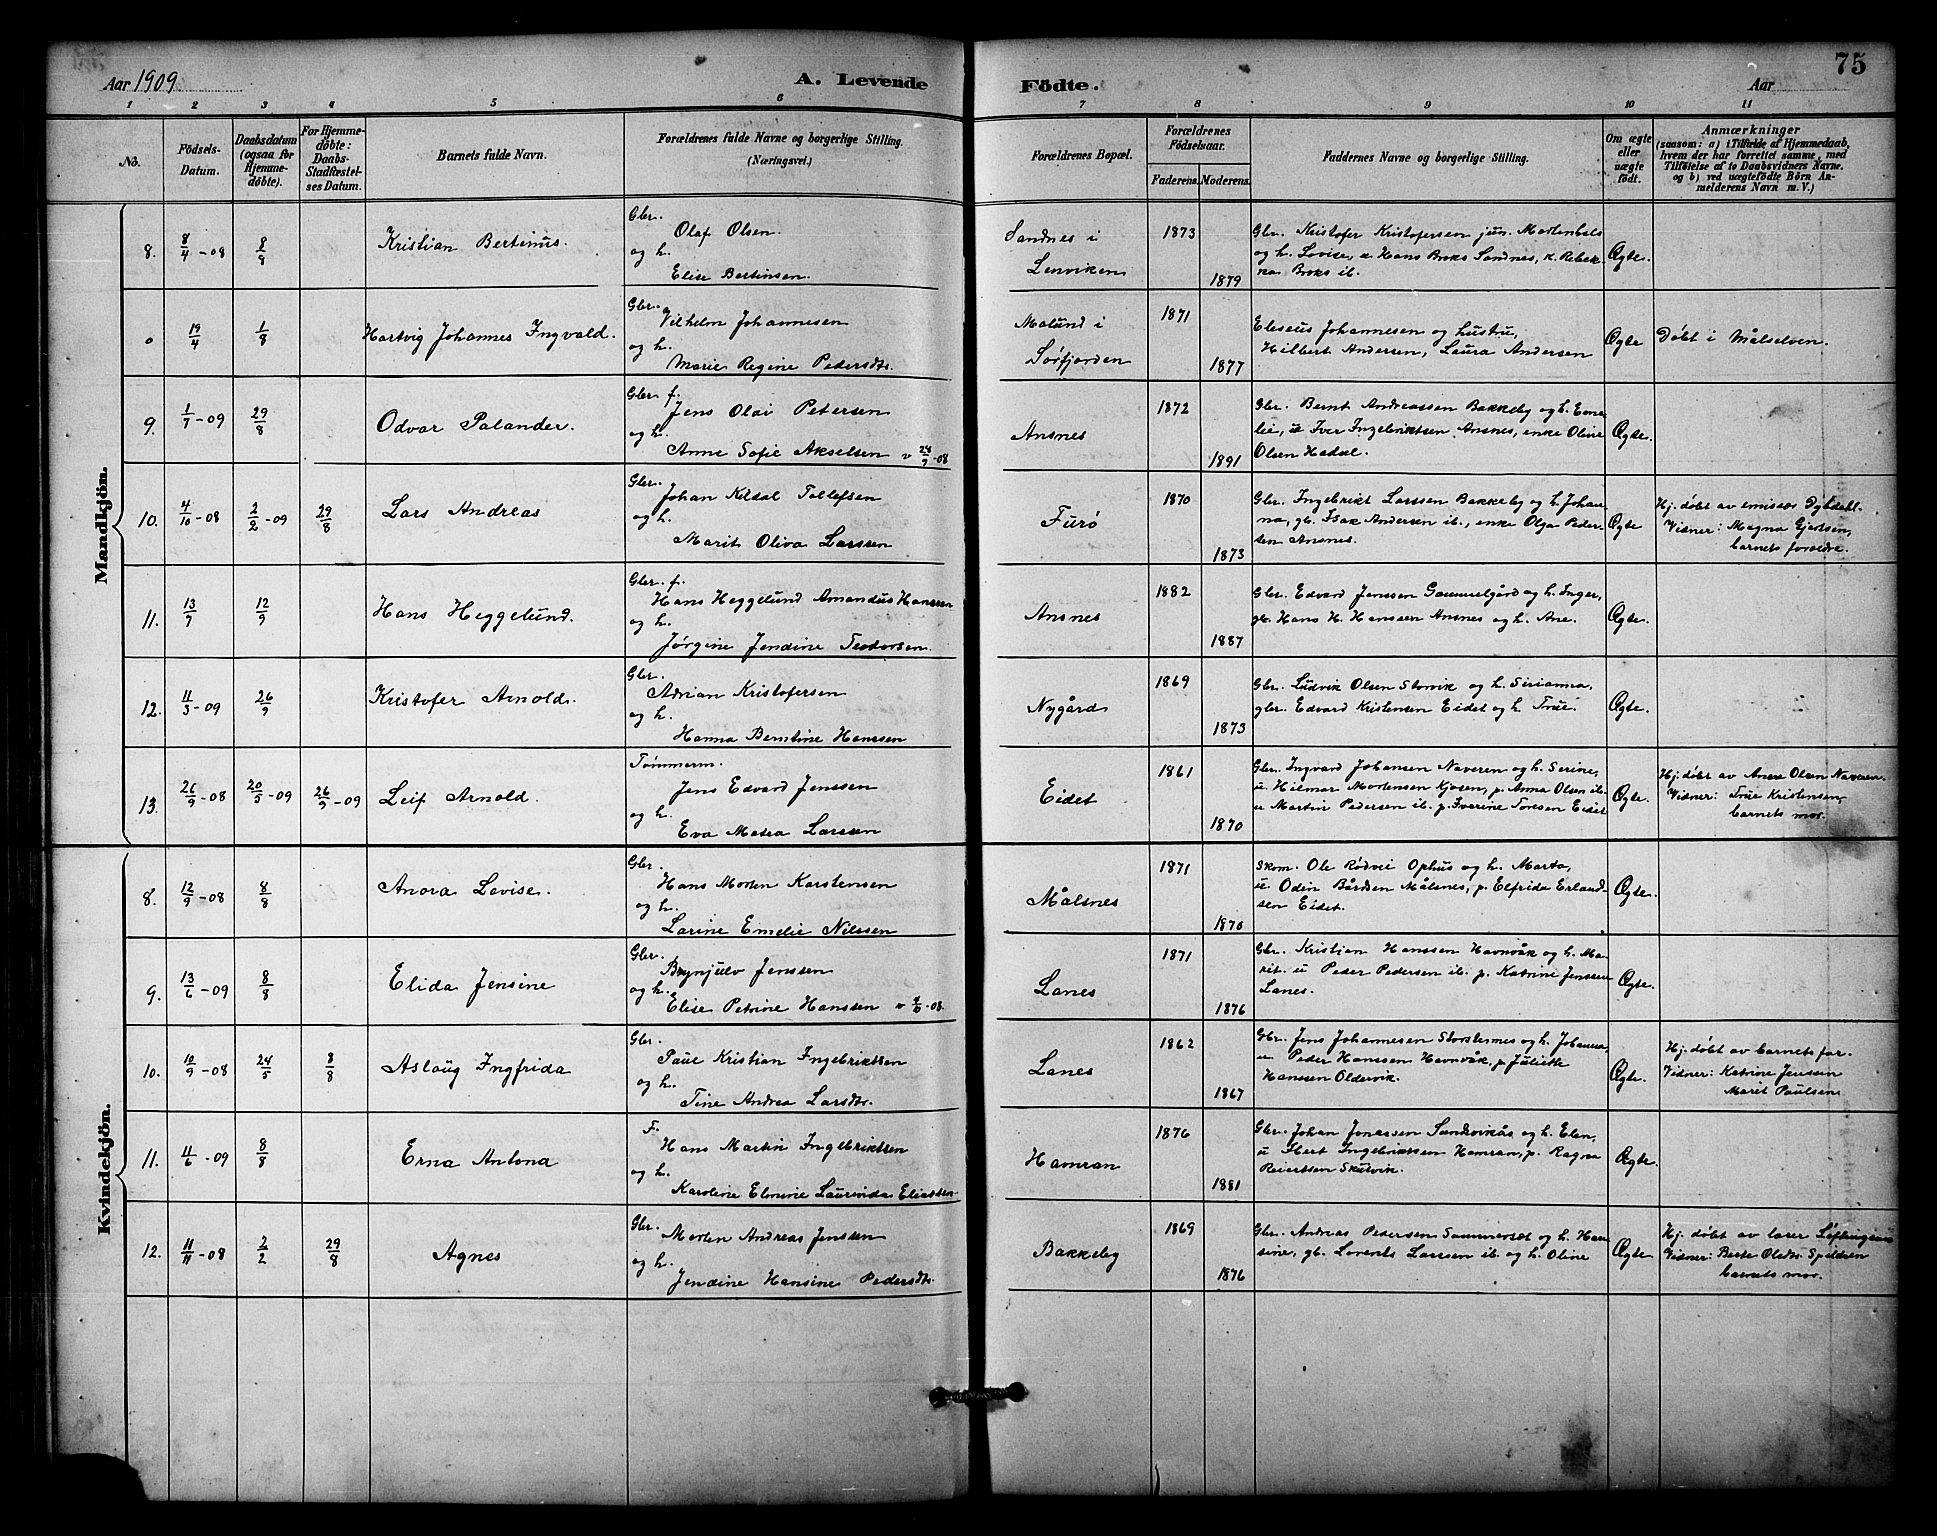 Aar 1909.
A. Levende
Födte.
Aar
75
1 2 3 4 5 6 7 8 9 10 11
No.
Födsels-Datum.
Daabsdatum (ogsaa for Hjemmedöbte).
For Hjemmedöbte: Daabs-Stadfæstelses Datum.
Barnets fulde Navn.
Forældrenes fulde Navne og borgerlige Stilling.
(Næringsvei.)
Forældrenes Bopæl.
Forældrenes Födselsaar.
Faderens. Moderens.
Faddernes Navne og borgerlige Stilling.
Om ægte eller uægte födt.
Anmærkninger
(saasom: a) i Tilfælde af Hjemmedaab, hvem der har forrettet samme, med Tilföielse af to Daabsvidners Navne, og b) ved uægtefödte Börn Anmelderens Navn m. V.)
Mandkjön.
8. 8/4-08 8/8 Kristian Bertinus.
Gbr. Olaf Olsen
og h.
Elise Bertinsen
Sandnes i
Lenviken
1873
1879
Gbr. Kristofer Kristofersen jun. Mortenhals
og h. Lovise, u. Hans Broks Sandnes, k. Rebek-
ka Broks ib.
Ægte.
0 19/4 1/8 Hartvig Johannes Ingvald.
Gbr. Vilhelm Johannesen
og h.
Marie Regine Pedersdtr.
Molund i
Sörfjorden
1871
1877
Eleseus Johannesen og hustru,
Hilbert Andersen, Laura Andersen
Ægte
Døbt i Målselven.
9. 1/7-09 29/8 Odvar Palander.
Gbr. f. Jens Olai Petersen
og h.
Anne Sofie Akselsen v 24/9-08
Ansnes
1872
1891
Gbr. Bernt Andreassen Bakkeby og h. Eme-
lie, u Iver Ingebriktsen Ansnes, enke Oline
Olsen
Ægte.
10. 4/10-08 2/2-09 29/8 Lars Andreas
Gbr. Johan Keldal Tollefsen
og h.
Marit Oliva Larssen
Furö
1870
1873
Gbr. Ingebrikt Larssen Bakkeby og h. Johan-
na, gb. Isak Andersen ib., enke Olga Peder-
sen Ansnes.
Ægte
Hj. døbt av emissær Dybdahl.
Vidner: Magna Gjertsen,
barnets foreldre.
11. 13/7 12/9 Hans Heggelund.
Gbr. f.
Hans Heggelund Amandus Hanssen
og h.
Jørgine Jendine Teodorsen.
Ansnes
1882
1887
Gbr. Edvard Jenssen Gammelgård og h. Inger,
gb. Hans H. Hanssen Ansnes og h. Ane.
Ægte.
12. 11/3-09 26/9 Kristofer Arnold.
Gbr.
Adrian Kristofersen
og h.
Hanna Berntine Hanssen
Nygård
1869
1873
Gbr. Ludvik Olsen Storvik og h. Sirianna,
gbr. Edvard Kristensen Eidet og h. True.
Ægte.
13. 26/9-08 20/5-09 26/9-09 Leif Arnold.
Tømmerm.
Jens Edvard Jenssen
og h.
Eva Matea Larssen
Eidet
1861
1870
Gbr. Ingvard Johansen Naveren og h. Serine,
u. Hilmar Mortensen Kjosen, p. Anna Olsen ib.
u Martin Pedersen ib. p. Iverine Toresen Eidet
Ægte.
Hj. døbt av Anne Olsen Naveren.
Vidner: True Kristensen,
barnets mor.
Kvindekjön.
8. 12/9-08 8/8 Anora Lovise.
Gbr.
Hans Morten Karstensen
og h.
Larine Emelie Nilssen
Målsnes
1871
1870
Skom. Ole Rödvei Ophus og h. Marta,
u. Odin Bårdsen Målsnes, p. Elfrida Erland-
sen Eidet.
Ægte.
9. 13/6-09 8/8 Elida Jensine
Gbr.
Brynjulv Jenssen
og h.
Elise Petrine Hanssen v 4/6-08.
Lanes
1871
1876
Gbr. Kristian Hanssen Havnvåk og h. Ma-
rit. u Peder Pedersen ib. p. Katrine Jenssen
Lanes.
Ægte.
10. 10/9-08 24/5 8/8 Aslaug Ingfrida
Gbr.
Paul Kristian Ingebriktsen
og h.
Tine Andrea Larsdtr.
Lanes
1862
1867
Gbr. Jens Johannesen Storstennes og h. Johanna,
u. Peder Hanssen Havnvåk, p. Julidte
Hanssen Oldervik.
Ægte.
Hj. døbt av barnets far.
Vidner: Katrine Jenssen
Marit Paulsen
11. 11/6-09 8/8 Erna Antona
F.
Hans Martin Ingebriktsen
og h.
Karoline Elmine Laurinda Eliassen.
Hamran
1876
1881
Gbr. Johan Jonassen Sandvikås og h. Elen,
u Ingebriktsen Hamran, p. Ragna
Reiertsen Skutvik.
Ægte.
12. 11/11-08 2/2 29/8 Agnes
Gbr. Morten Andreas Jenssen
og h.
Jendine Hansine Pedersdtr.
Bakkeby
1869
1876
Gbr. Andreas Pedersen Sommerset og h. Han-
sine, gb. Lorents Larssen ib. og h. Oline
Ægte
Hj. døbt av lærer
Vidner: Berte Olsdtr. Spildren
barnets mor.